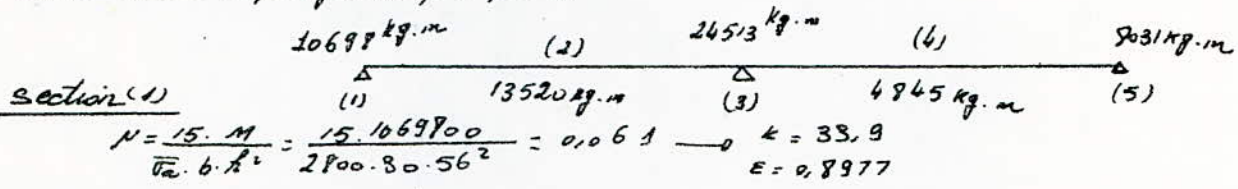 10698 kg.m (2) 24513 kg.m (4) 9031 kg.m
(1) 13520 kg.m (3) 4845 kg.m (5)
section (1)
μ = 15. M / σ̅a. b. h² = 15.1069800 / 2800.30.56² = 0,061 → k = 33,9
ε = 0,8977